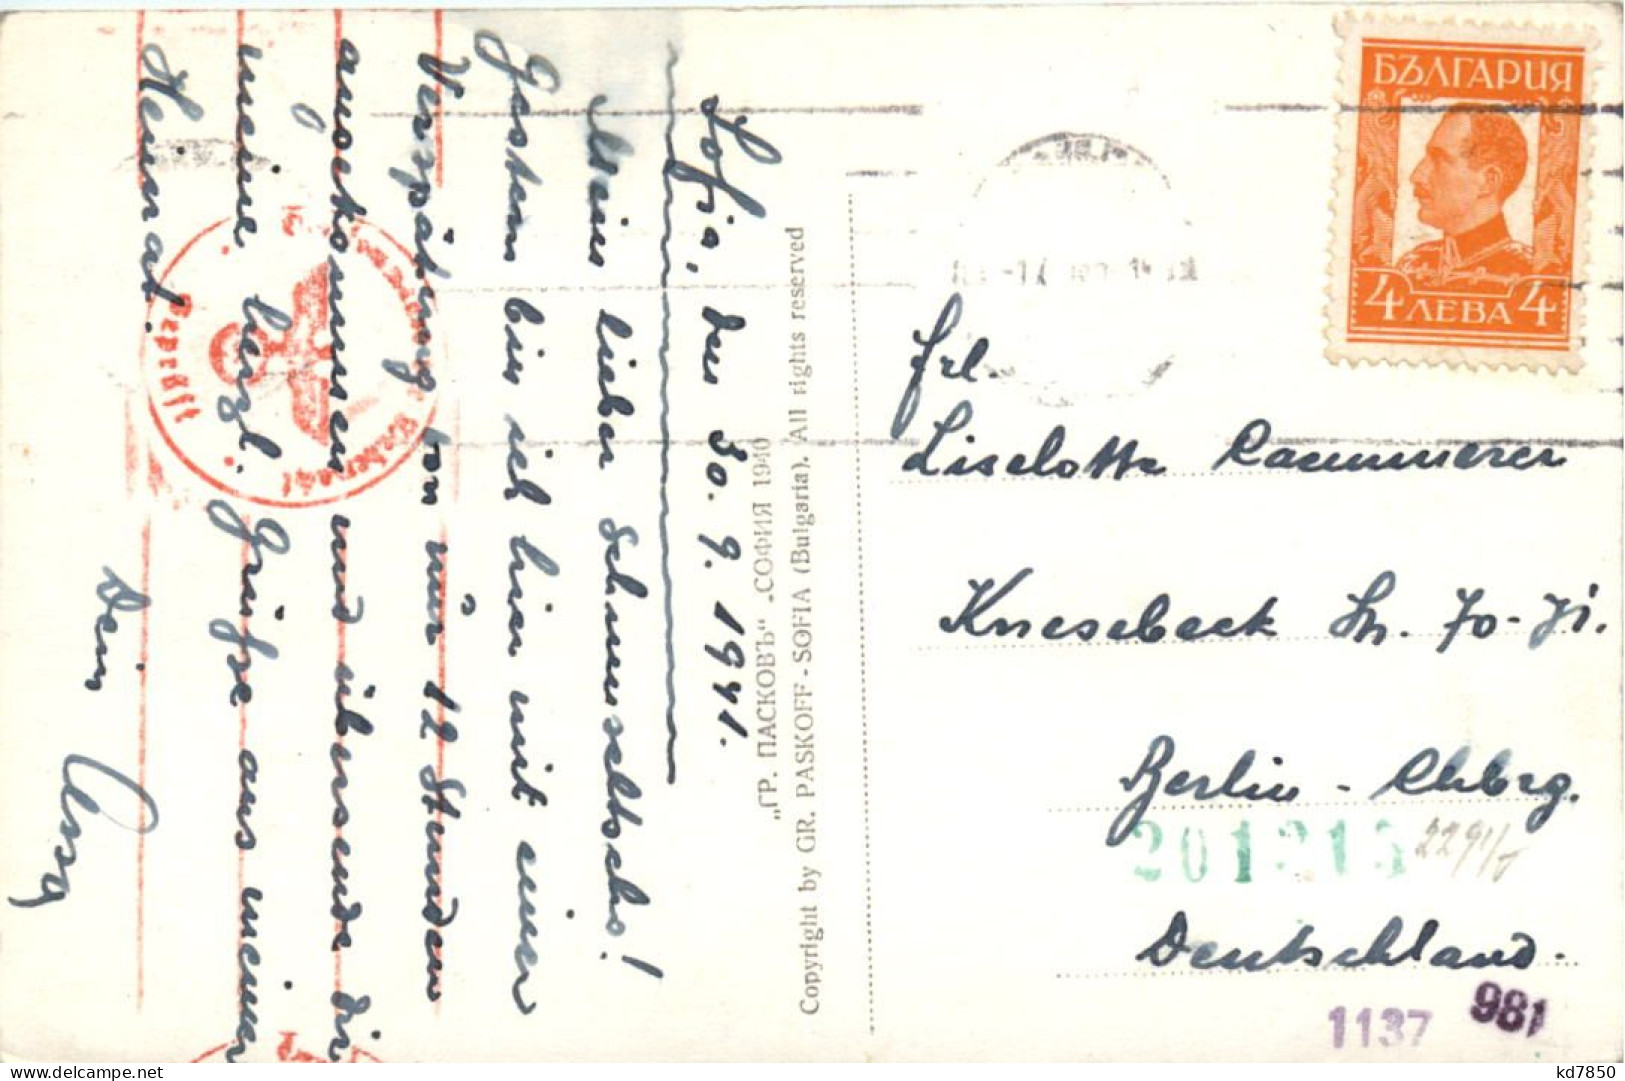 Sofia, den 30.9.1941.
Mein lieber Schnuseltsches!
Gestern bin ich hier mit einer
Verspätung von nur 12 Stunden
angekommen und übersende dir
meine herzl. Grüße aus meiner
Heimat.
Dein
„ГР. ПАСКОВЪ“ „СОФИЯ 1940
Copyright by GR. PASKOFF - SOFIA (Bulgaria). All rights reserved
БЪЛГАРИЯ
4 ЛЕВА 4
Frl.
Liselotte Cammerer
Knesebeck Str. 70-71.
Berlin - Chbrg.
201213
Deutschland.
1137
981
Geprüft
kd7850